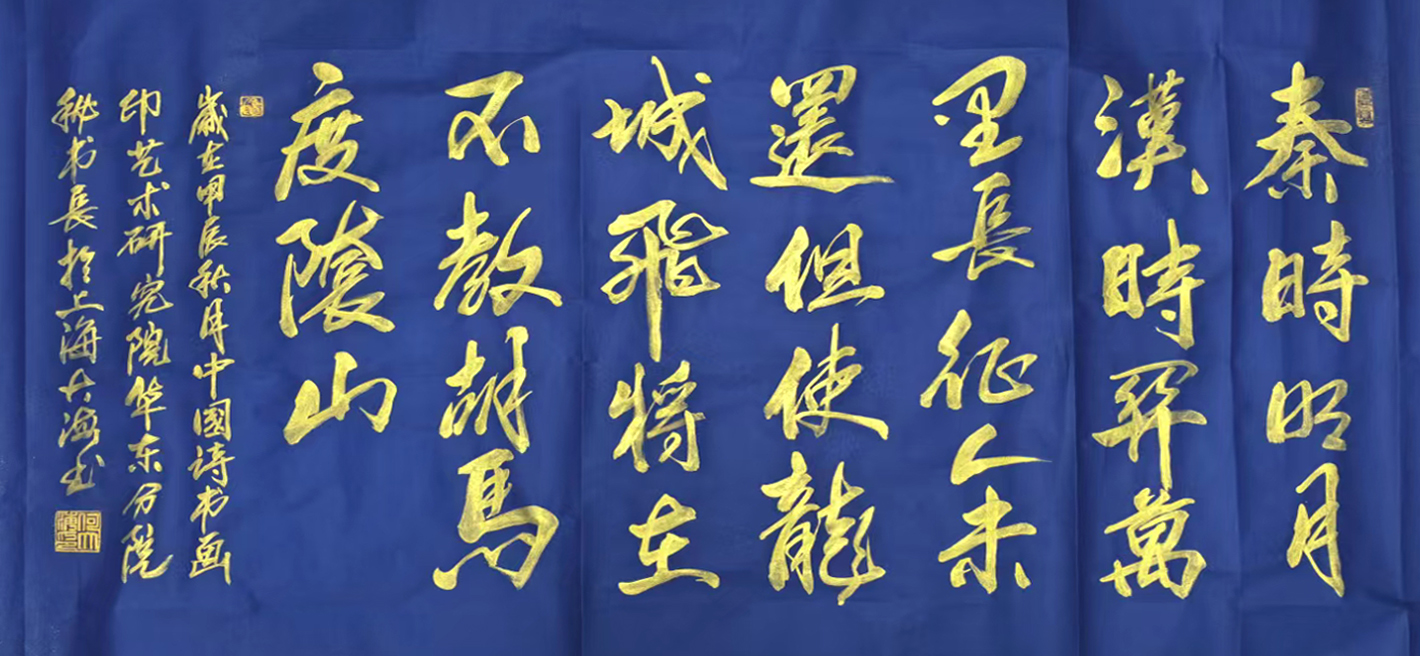 秦時明月
漢時關萬
里長征人未
還但使龍
城飛将在
不教胡馬
度陰山
歲在甲辰秋月中國诗书画
印艺术研究院华东分院
秘书长於上海大海书